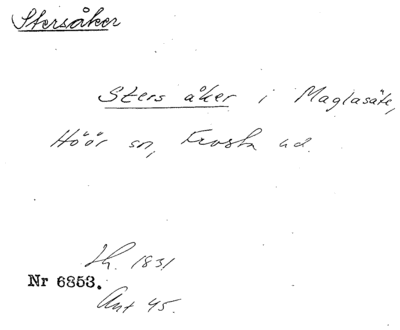 Stersåker
Sters åker i Maglasäte,
Höör sn, Frosta hd.
Lh. 1831
Nr 6853.
Ant 45.